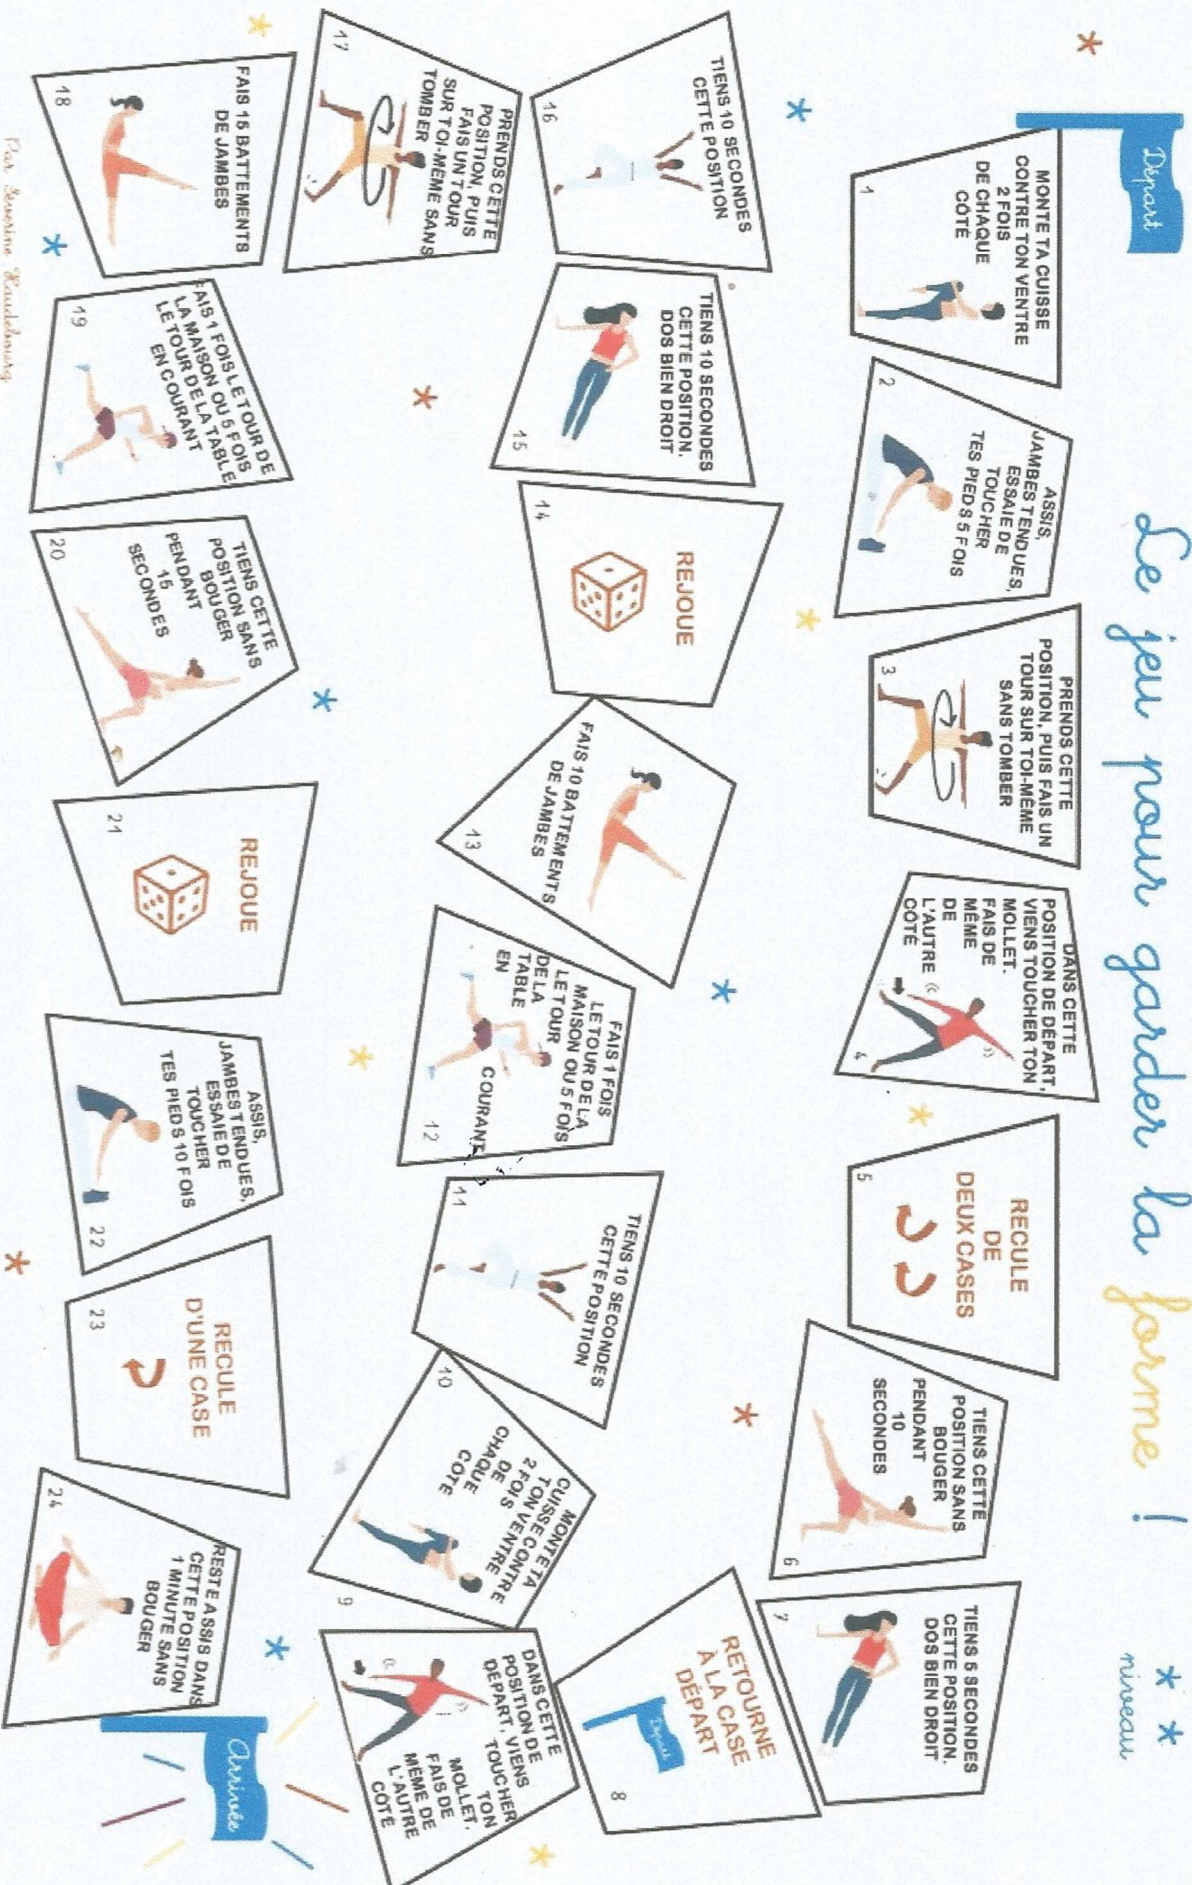 Le jeu pour garder la forme !
niveau
Départ
MONTE TA CUISSE
CONTRE TON VENTRE
2 FOIS
DE CHAQUE
CÔTÉ
1
ASSIS,
JAMBES TENDUES,
ESSAIE DE
TOUCHER
TES PIEDS 5 FOIS
2
PRENDS CETTE
POSITION, PUIS FAIS UN
TOUR SUR TOI-MÊME
SANS TOMBER
3
DANS CETTE
POSITION DE DÉPART,
VIENS TOUCHER TON
MOLLET.
FAIS DE
MÊME
DE
L'AUTRE
CÔTÉ
4
RECULE
DE
DEUX CASES
5
TIENS CETTE
POSITION SANS
BOUGER
PENDANT
10
SECONDES
6
TIENS 5 SECONDES
CETTE POSITION.
DOS BIEN DROIT
7
RETOURNE
À LA CASE
DÉPART
Départ
8
DANS CETTE
POSITION DE
DÉPART, VIENS
TOUCHER
TON
MOLLET.
FAIS DE
MÊME DE
L'AUTRE
CÔTÉ
9
MONTE TA
CUISSE CONTRE
TON VENTRE
2 FOIS
DE
CHAQUE
CÔTÉ
10
TIENS 10 SECONDES
CETTE POSITION
11
FAIS 1 FOIS
LE TOUR DE LA
MAISON OU 5 FOIS
LE TOUR
DE LA
TABLE
EN
COURANT
12
FAIS 10 BATTEMENTS
DE JAMBES
13
REJOUE
14
TIENS 10 SECONDES
CETTE POSITION.
DOS BIEN DROIT
15
TIENS 10 SECONDES
CETTE POSITION
16
PRENDS CETTE
POSITION, PUIS
FAIS UN TOUR
SUR TOI-MÊME SANS
TOMBER
17
FAIS 15 BATTEMENTS
DE JAMBES
18
FAIS 1 FOIS LE TOUR DE
LA MAISON OU 5 FOIS
LE TOUR DE LA TABLE
EN COURANT
19
TIENS CETTE
POSITION SANS
BOUGER
PENDANT
15
SECONDES
20
REJOUE
21
ASSIS,
JAMBES TENDUES,
ESSAIE DE
TOUCHER
TES PIEDS 10 FOIS
22
RECULE
D'UNE CASE
23
RESTE ASSIS DANS
CETTE POSITION
1 MINUTE SANS
BOUGER
24
Arrivée
Par Séverine Haudebourg